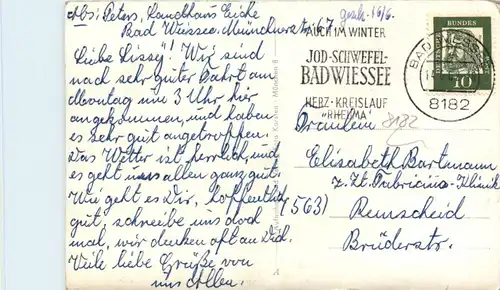 Abs: Peters, Landhaus Eiche
Bad Wiessee, Münchnerstr. 67
gesch. 16/6.
Liebe Lissy! Wir sind
nach sehr guter Fahrt am
Montag um 3 Uhr hier
angekommen, und haben
es sehr gut angetroffen.
Das Wetter ist herrlich, und
es geht uns allen ganz gut.
Wie geht es Dir, hoffentlich
gut, schreibe uns doch
mal, wir denken oft an Dich.
Viele liebe Grüße von
uns allen.
AUCH IM WINTER
JOD-SCHWEFEL-
BAD WIESSEE
HERZ-KREISLAUF
"RHEUMA"
BAD WIESSEE
8182
DEUTSCHE BUNDESPOST
10
8182
Fräulein
Elisabeth Bartmann
z. Zt. Fabricius-Klinik
(563) Remscheid
Brüderstr.